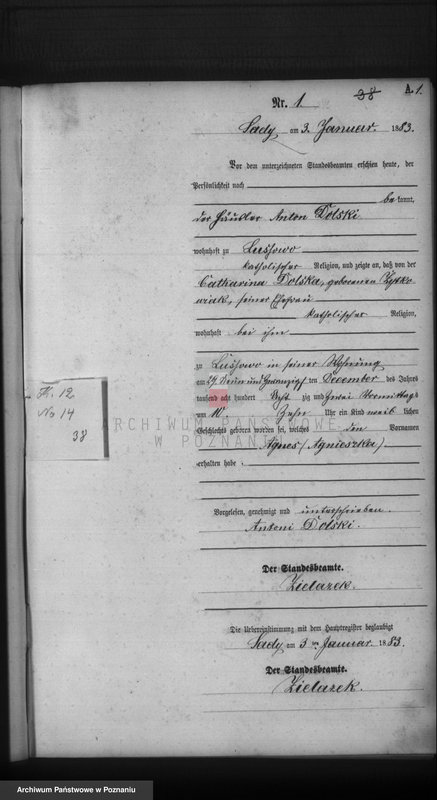 38 A.1.
Nr. 1.
Sady, am 3. Januar. 1883.
Vor dem unterzeichneten Standesbeamten erschien heute, der
Persönlichkeit nach
bekannt,
der Häusler Anton Dolski
wohnhaft zu Lussowo
katholischer Religion, und zeigte an, daß von der
Catharina Dolska, geborenen Zytko
wiak, seiner Ehefrau
katholischer Religion,
wohnhaft bei ihm
zu Lussowo in seiner Wohnung
am 29 Neun und Zwanzigsten December des Jahres
tausend acht hundert Acht zig und zwei Vormittags
um 10 Zehn Uhr ein Kind weib lichen
Geschlechts geboren worden sei, welches den Vornamen
Agnes (Agnieszka)
erhalten habe
Vorgelesen, genehmigt und unterschrieben.
Antoni Dolski.
Der Standesbeamte.
Zielazek.
Die Uebereinstimmung mit dem Hauptregister beglaubigt
Sady am 3ten Januar. 1883.
Der Standesbeamte.
Zielazek.
12
No 14
38
ARCHIWUM PAŃSTWOWE
W POZNANIU
Archiwum Państwowe w Poznaniu